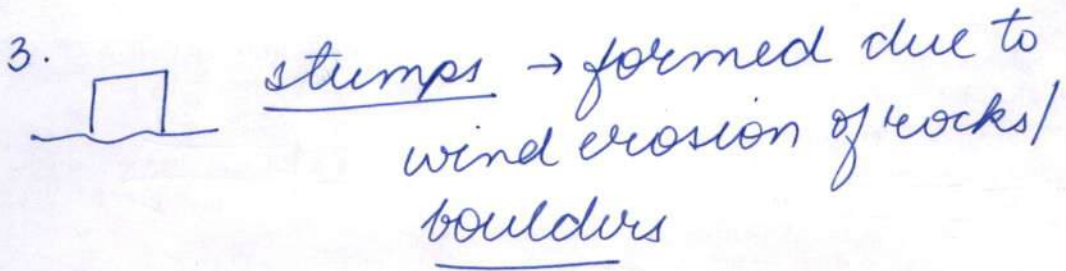 3. stumps → formed due to
wind erosion of rocks/
boulders